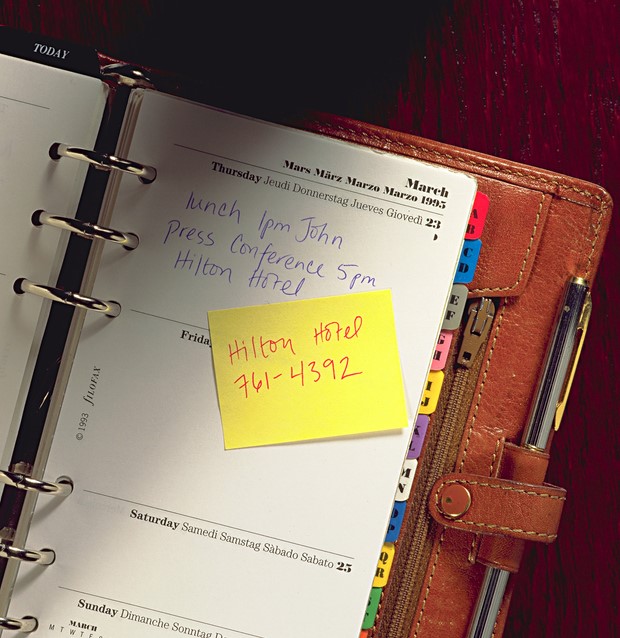 TODAY
March
Mars März Marzo Marzo 1995
Thursday Jeudi Donnerstag Jueves Giovedì 23
lunch 1pm John
Press Conference 5pm
Hilton Hotel
Hilton Hotel
761-4392
© 1993 filofax
Saturday Samedi Samstag Sàbado Sabato 25
Sunday Dimanche Sonntag
MARCH
M T W T F
A
B
C
D
E
F
H
I
J
K
L
M
N
O
P
Q
R